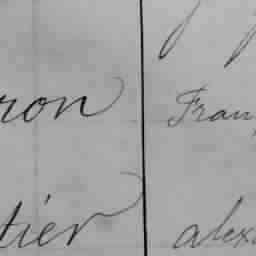 ron Fran
tier alex